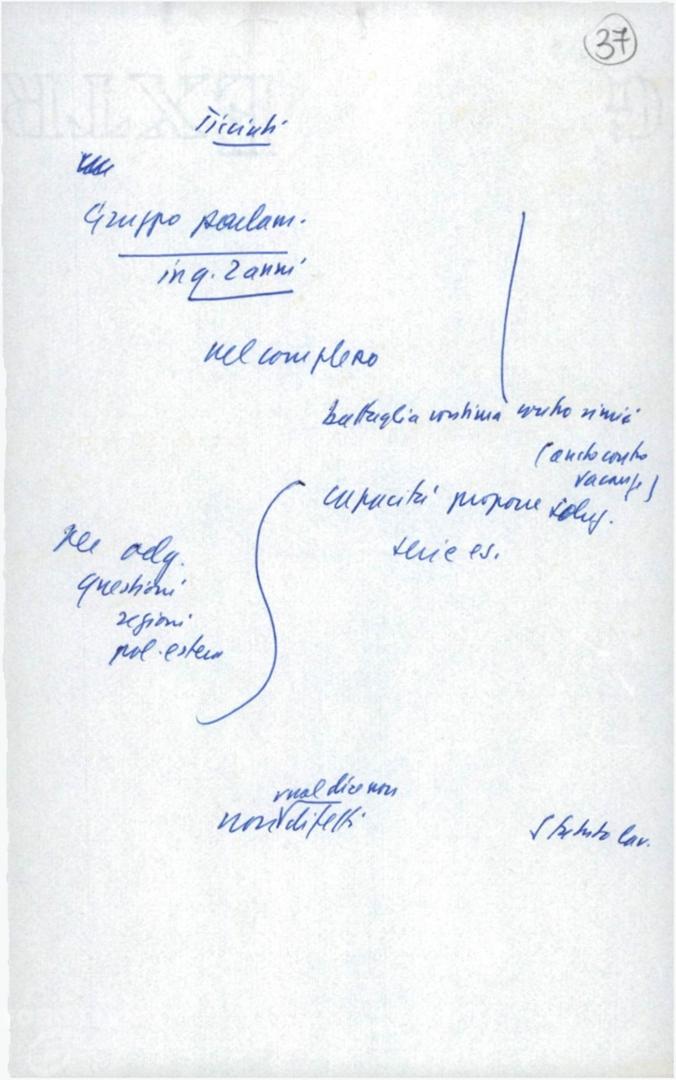 37
Gruppo parlam.
ing. Zanni
nel complesso
battaglia continua contro rinvii
(anche contro
vacanze)
capacità proporre soluz.
serie es.
odg.
questioni
regioni
pol. estera
vuol dire non
non difetti
Statuto lav.